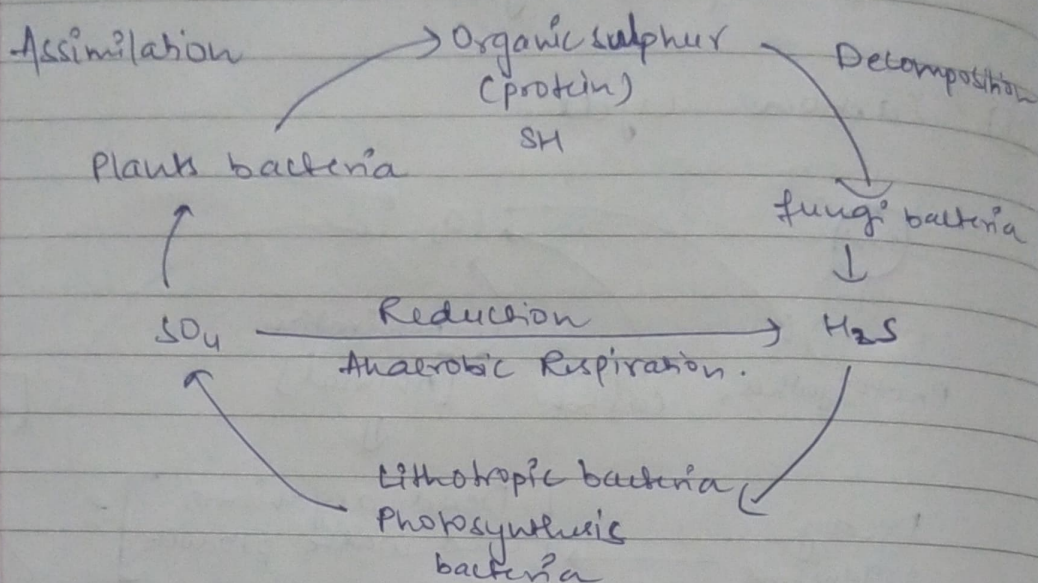 Assimilation
Organic sulphur
(protein)
SH
Decomposition
Plants bacteria
fungi bacteria
SO4
Reduction
Anaerobic Respiration.
H2S
Lithotropic bacteria
Photosynthesis
bacteria